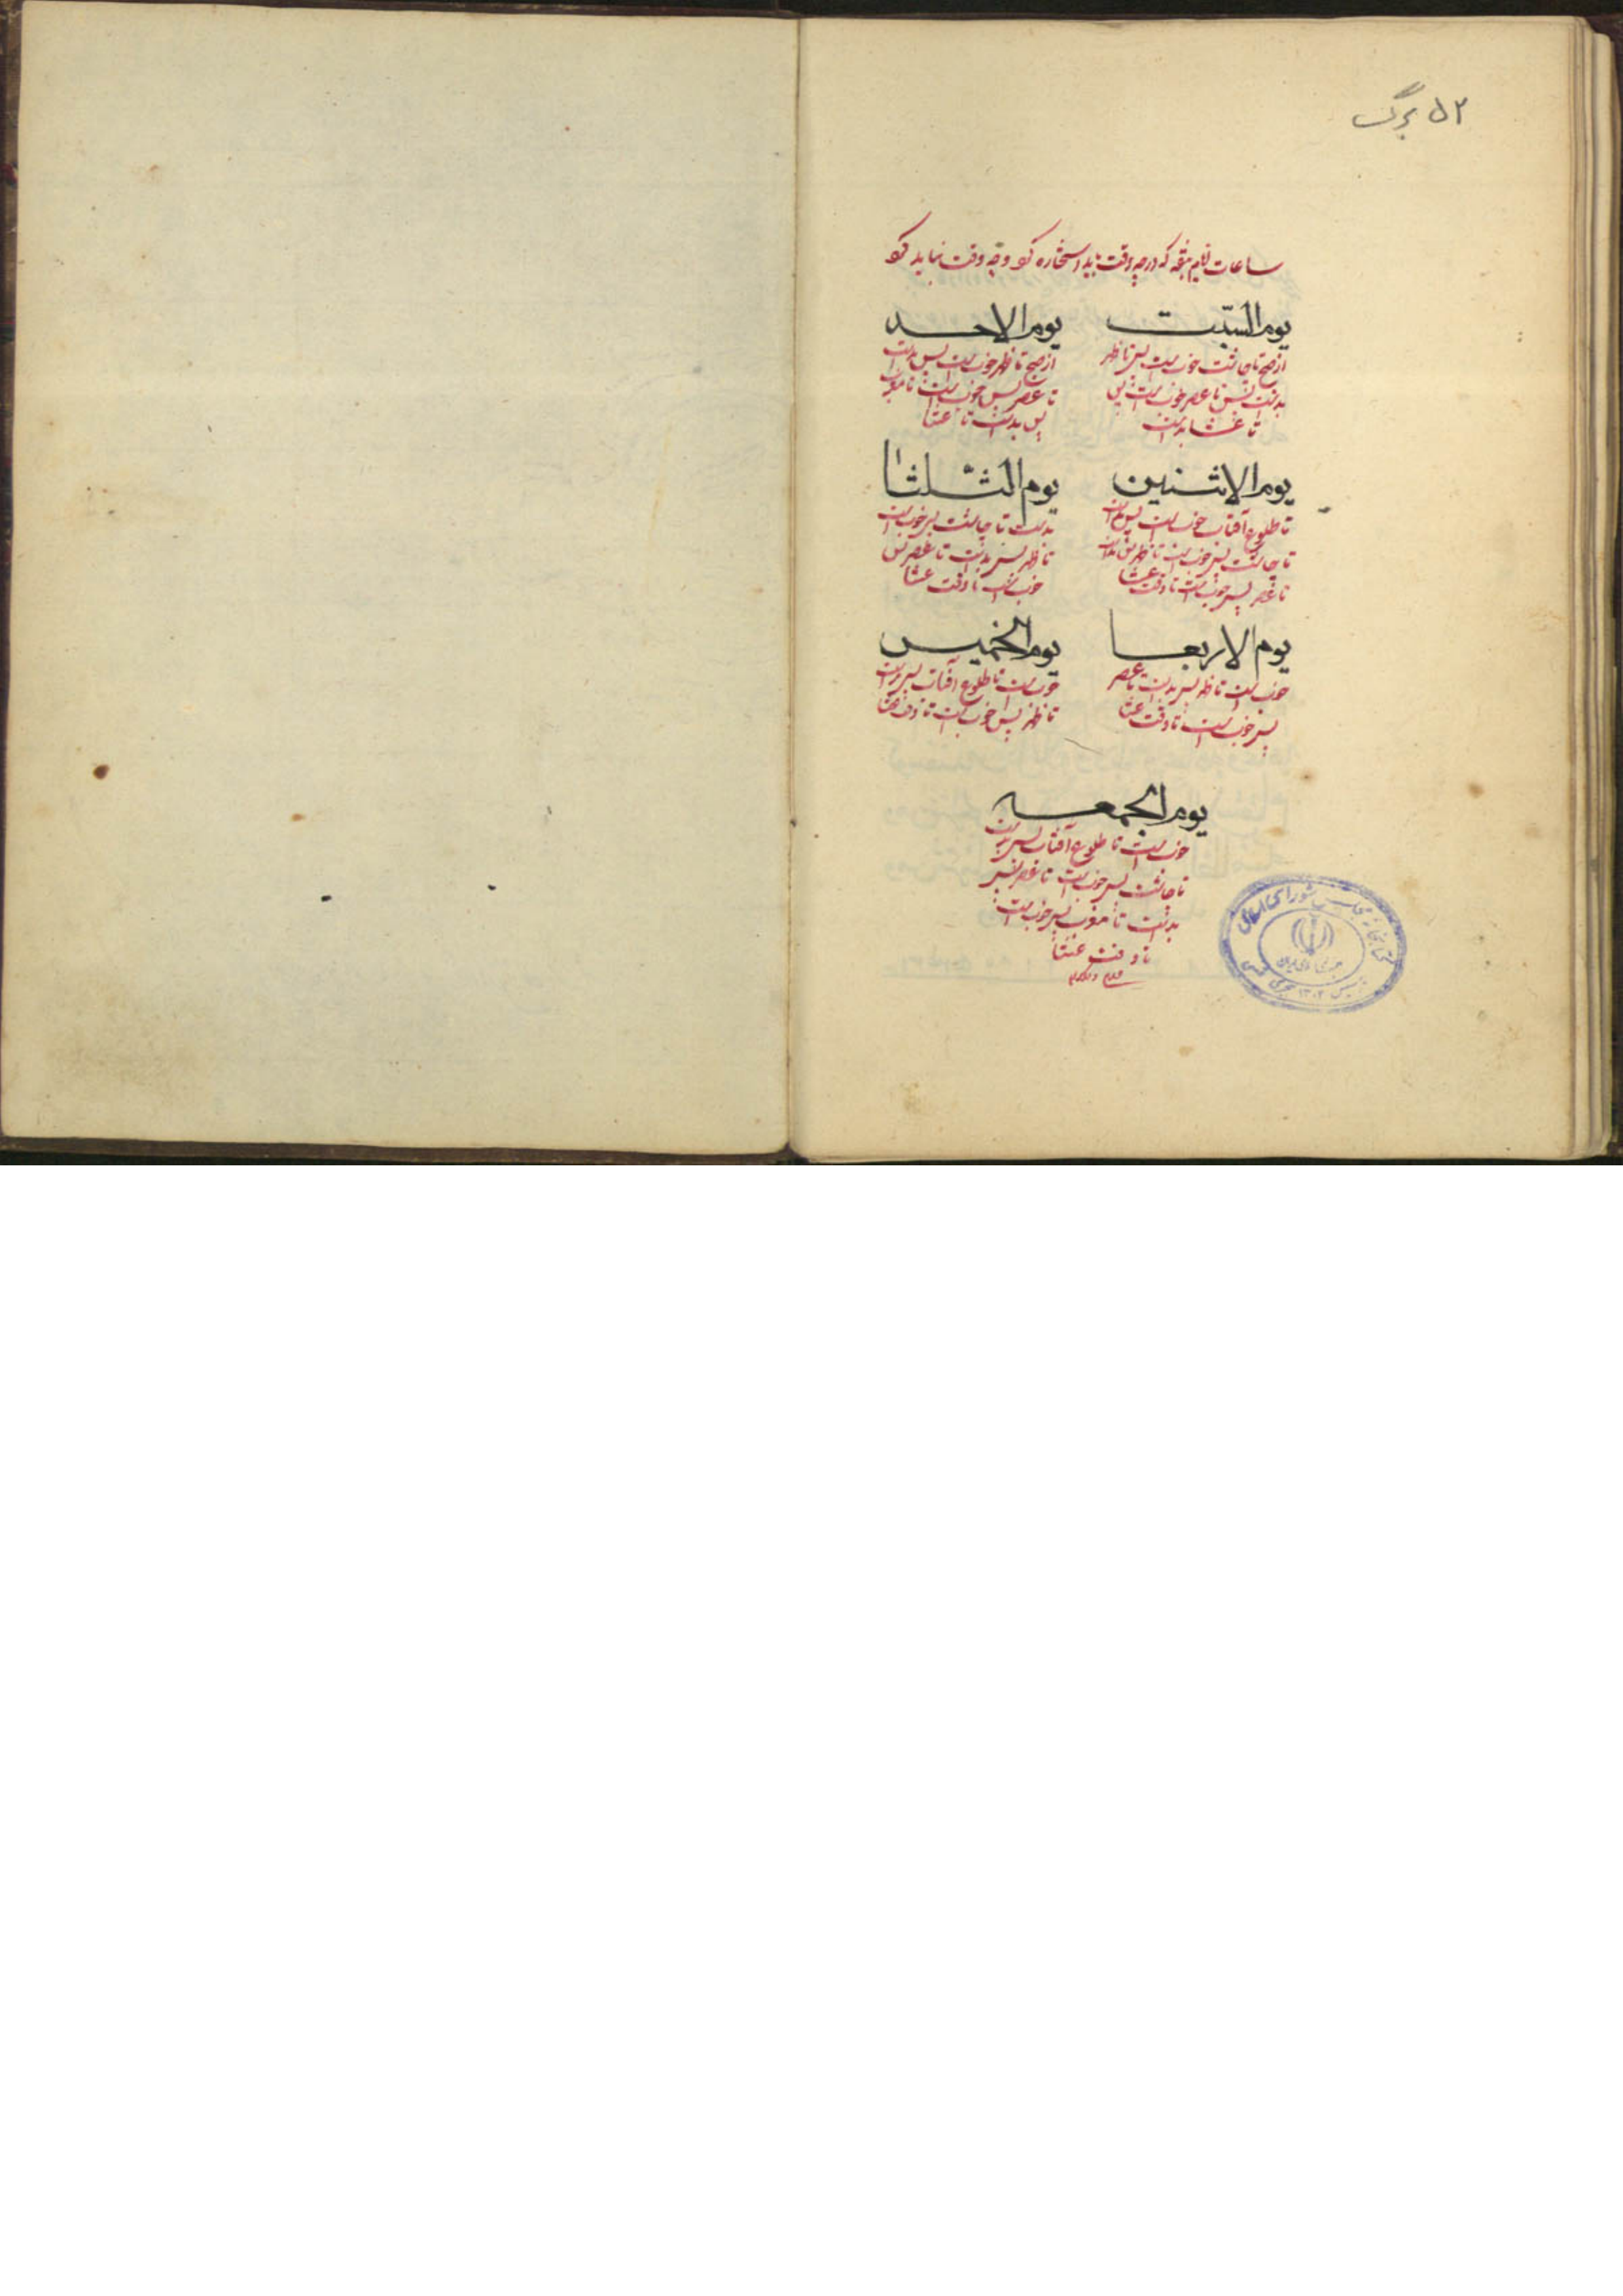 ۵۲ برگ
ساعات ایام هفته که در چه وقت باید استخاره کرد و چه وقت نباید کرد
یوم السبت
از صبح تا چاشت خوب است پس تا ظهر
بد است پس تا عصر خوب است پس
تا عشا بد است
یوم الاحد
از صبح تا ظهر خوب است پس بد است
تا عصر پس خوب است تا مغرب
پس بد است تا عشا
یوم الاثنین
تا طلوع آفتاب خوب است پس بد است
تا چاشت پس خوب است تا ظهر پس بد است
تا عصر پس خوب است تا وقت عشا
یوم الثلثا
بد است تا چاشت پس خوب است
تا ظهر پس بد است تا عصر پس
خوب است تا وقت عشا
یوم الاربعا
خوب است تا ظهر پس بد است تا عصر
پس خوب است تا وقت عشا
یوم الخمیس
خوب است تا طلوع آفتاب پس بد است
تا ظهر پس خوب است تا وقت عشا
یوم الجمعه
خوب است تا طلوع آفتاب پس بد است
تا چاشت پس خوب است تا عصر پس
بد است تا مغرب پس خوب است
تا وقت عشا
کتابخانه مجلس شورای اسلامی
جمهوری اسلامی ایران
تاسیس ۱۳۰۲ هجری شمسی